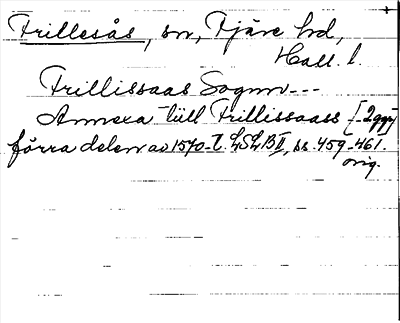 Frillesås, sn, Fjäre hd,
Hall. l.
Frillissaas Sognn ---
Annexa till Frillissaass [2 ggr]
förra delen av 1570-t. LSLB II, ss. 459-461.
orig.